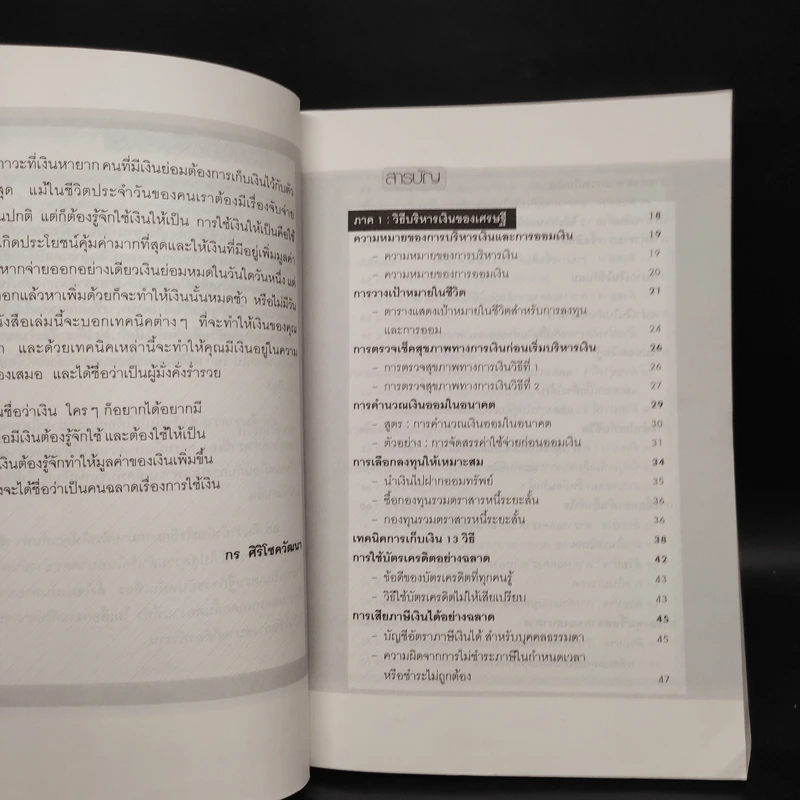 ภาวะที่เงินหายาก คนที่มีเงินย่อมต้องการเก็บเงินไว้กับตัว
สุด แม้ในชีวิตประจำวันของคนเราต้องมีเรื่องจับจ่าย
ปกติ แต่ก็ต้องรู้จักใช้เงินให้เป็น การใช้เงินให้เป็นคือใช้
เกิดประโยชน์คุ้มค่ามากที่สุดและให้เงินที่มีอยู่เพิ่มมูลค่า
หากจ่ายออกอย่างเดียวเงินย่อมหมดในวันใดวันหนึ่ง แต่
ออกแล้วหาเพิ่มด้วยก็จะทำให้เงินนั้นหมดช้า หรือไม่มีวัน
งสือเล่มนี้จะบอกเทคนิคต่างๆ ที่จะทำให้เงินของคุณ
และด้วยเทคนิคเหล่านี้จะทำให้คุณมีเงินอยู่ในความ
องเสมอ และได้ชื่อว่าเป็นผู้มั่งคั่งร่ำรวย
นชื่อว่าเงิน ใครๆ ก็อยากได้อยากมี
อมีเงินต้องรู้จักใช้ และต้องใช้ให้เป็น
เงินต้องรู้จักทำให้มูลค่าของเงินเพิ่มขึ้น
งจะได้ชื่อว่าเป็นคนฉลาดเรื่องการใช้เงิน
กร ศิริโชควัฒนา
สารบัญ
ภาค 1 : วิธีบริหารเงินของเศรษฐี 18
ความหมายของการบริหารเงินและการออมเงิน 19
- ความหมายของการบริหารเงิน 19
- ความหมายของการออมเงิน 20
การวางเป้าหมายในชีวิต 21
- ตารางแสดงเป้าหมายในชีวิตสำหรับการลงทุน
และการออม 24
การตรวจเช็คสุขภาพทางการเงินก่อนเริ่มบริหารเงิน 26
- การตรวจสุขภาพทางการเงินวิธีที่ 1 26
- การตรวจสุขภาพทางการเงินวิธีที่ 2 27
การคำนวณเงินออมในอนาคต 29
- สูตร : การคำนวณเงินออมในอนาคต 30
- ตัวอย่าง : การจัดสรรค่าใช้จ่ายก่อนออมเงิน 31
การเลือกลงทุนให้เหมาะสม 34
- นำเงินไปฝากออมทรัพย์ 35
- ซื้อกองทุนรวมตราสารหนี้ระยะสั้น 36
- กองทุนรวมตราสารหนี้ระยะสั้น 36
เทคนิคการเก็บเงิน 13 วิธี 38
การใช้บัตรเครดิตอย่างฉลาด 42
- ข้อดีของบัตรเครดิตที่ทุกคนรู้ 43
- วิธีใช้บัตรเครดิตไม่ให้เสียเปรียบ 43
การเสียภาษีเงินได้อย่างฉลาด 45
- บัญชีอัตราภาษีเงินได้ สำหรับบุคคลธรรมดา 45
- ความผิดจากการไม่ชำระภาษีในกำหนดเวลา
หรือชำระไม่ถูกต้อง 47